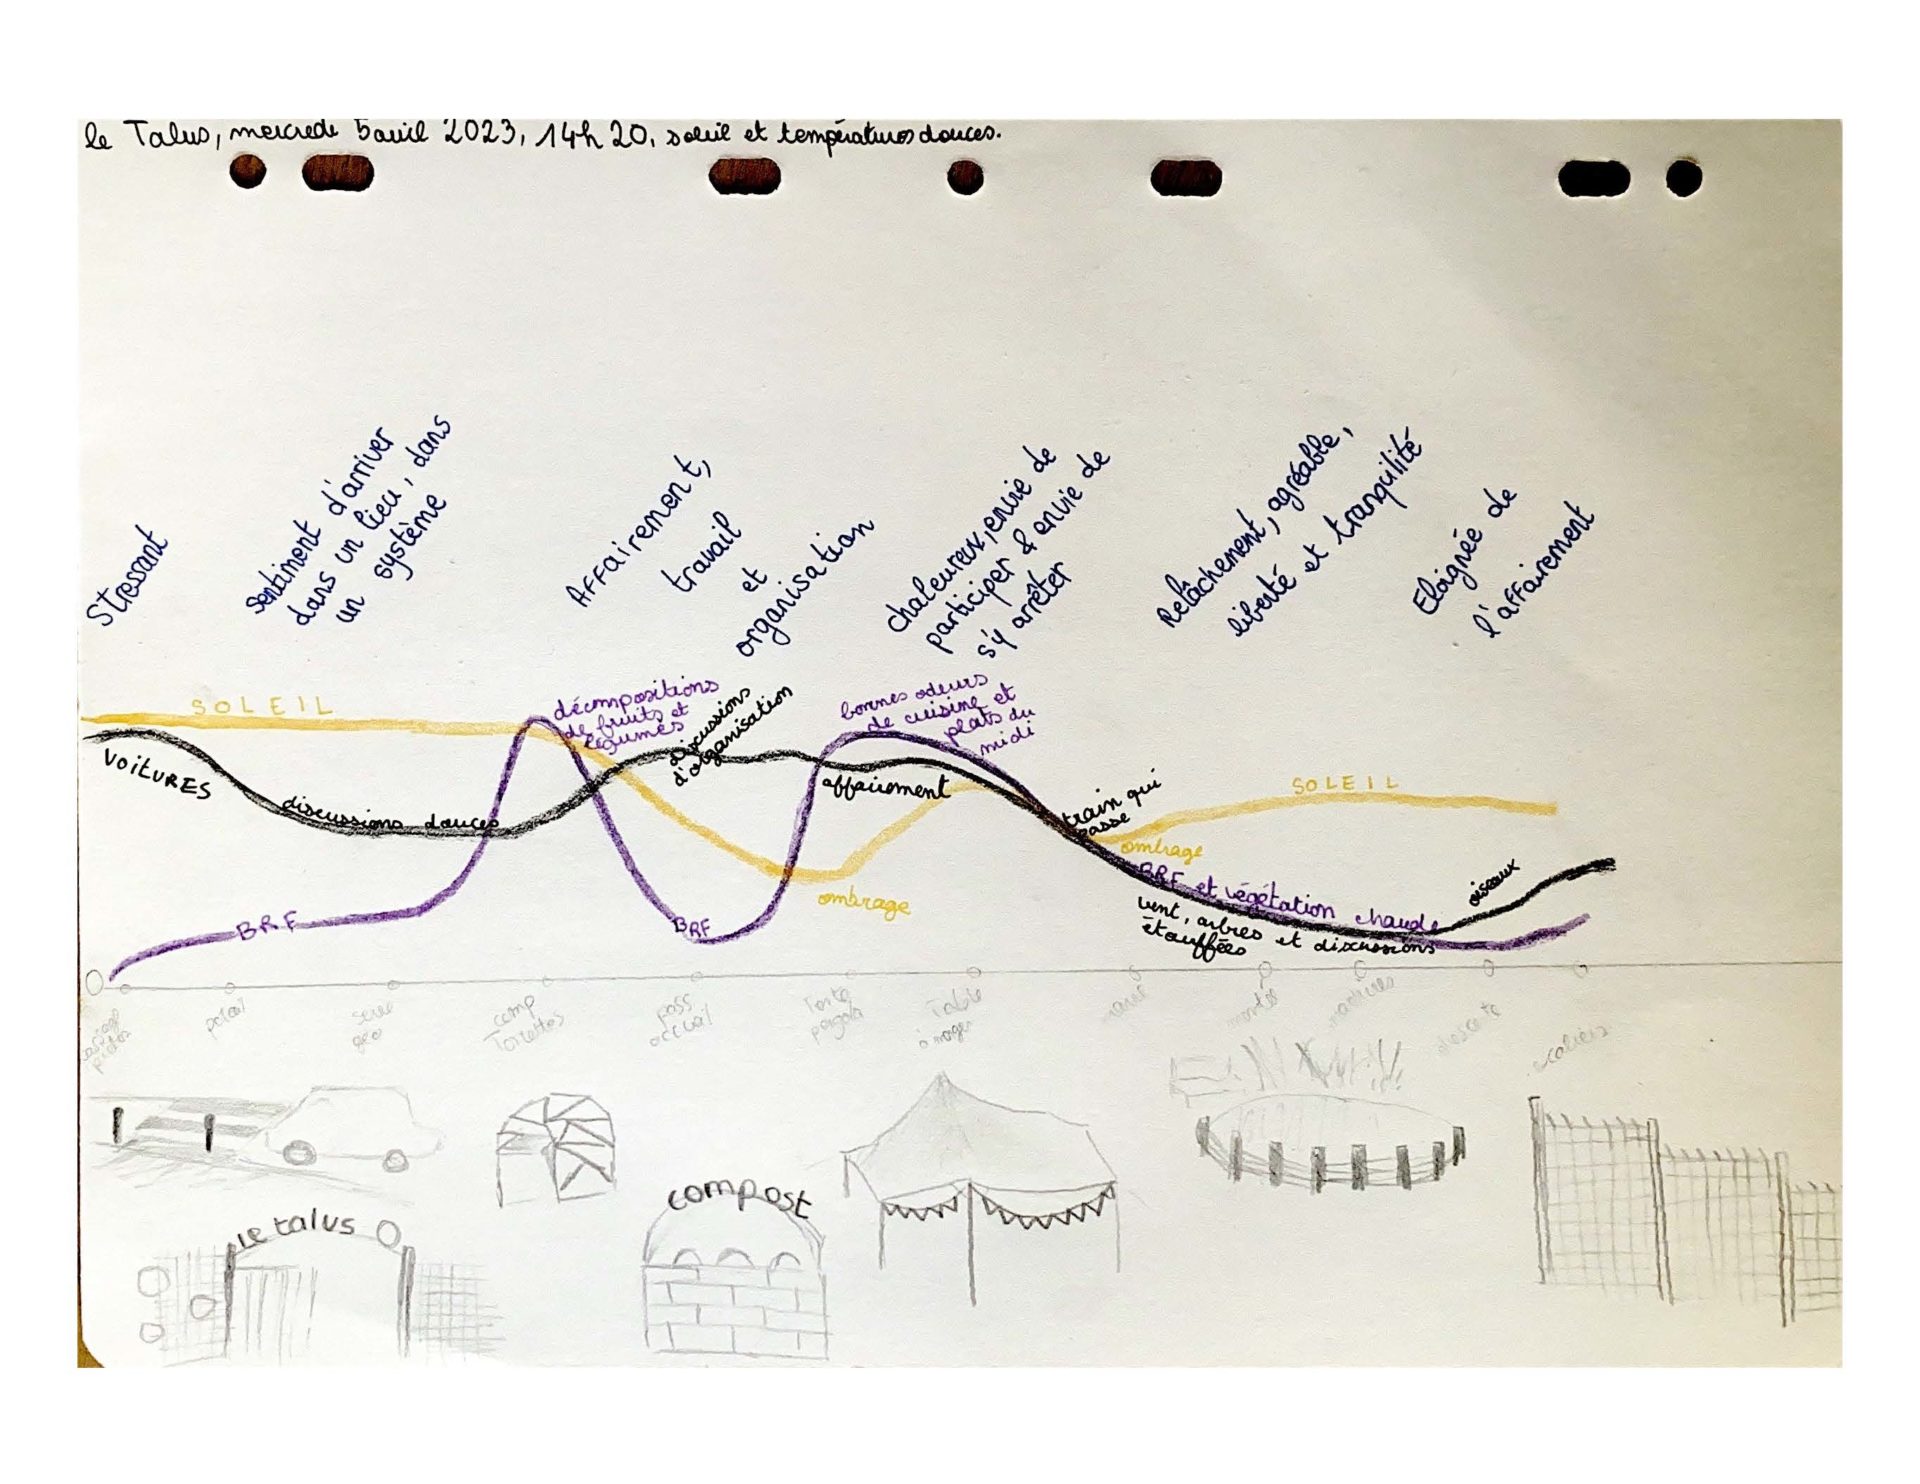 le Talus, mercredi 5 avril 2023, 14h20, soleil et températures douces.
Stressant
sentiment d'arriver
dans un lieu, dans
un système
Affairement,
travail
et
organisation
chaleureux, envie de
participer & envie de
s'y arrêter
Relâchement, agréable,
liberté et tranquilité
Eloignée de
l'affairement
SOLEIL
VOITURES
discussions douces
BRF
décompositions
de fruits et
légumes
discussions
d'organisation
BRF
ombrage
bonnes odeurs
de cuisine et
plats du
midi
affairement
train qui
passe
ombrage
SOLEIL
BRF et végétation chaude
vent, arbres et discussions
étouffées
oiseaux
serre
géo
comp
Toilettes
pass
accueil
pergola
Table
à manger
montée
descente
escaliers
le talus
compost